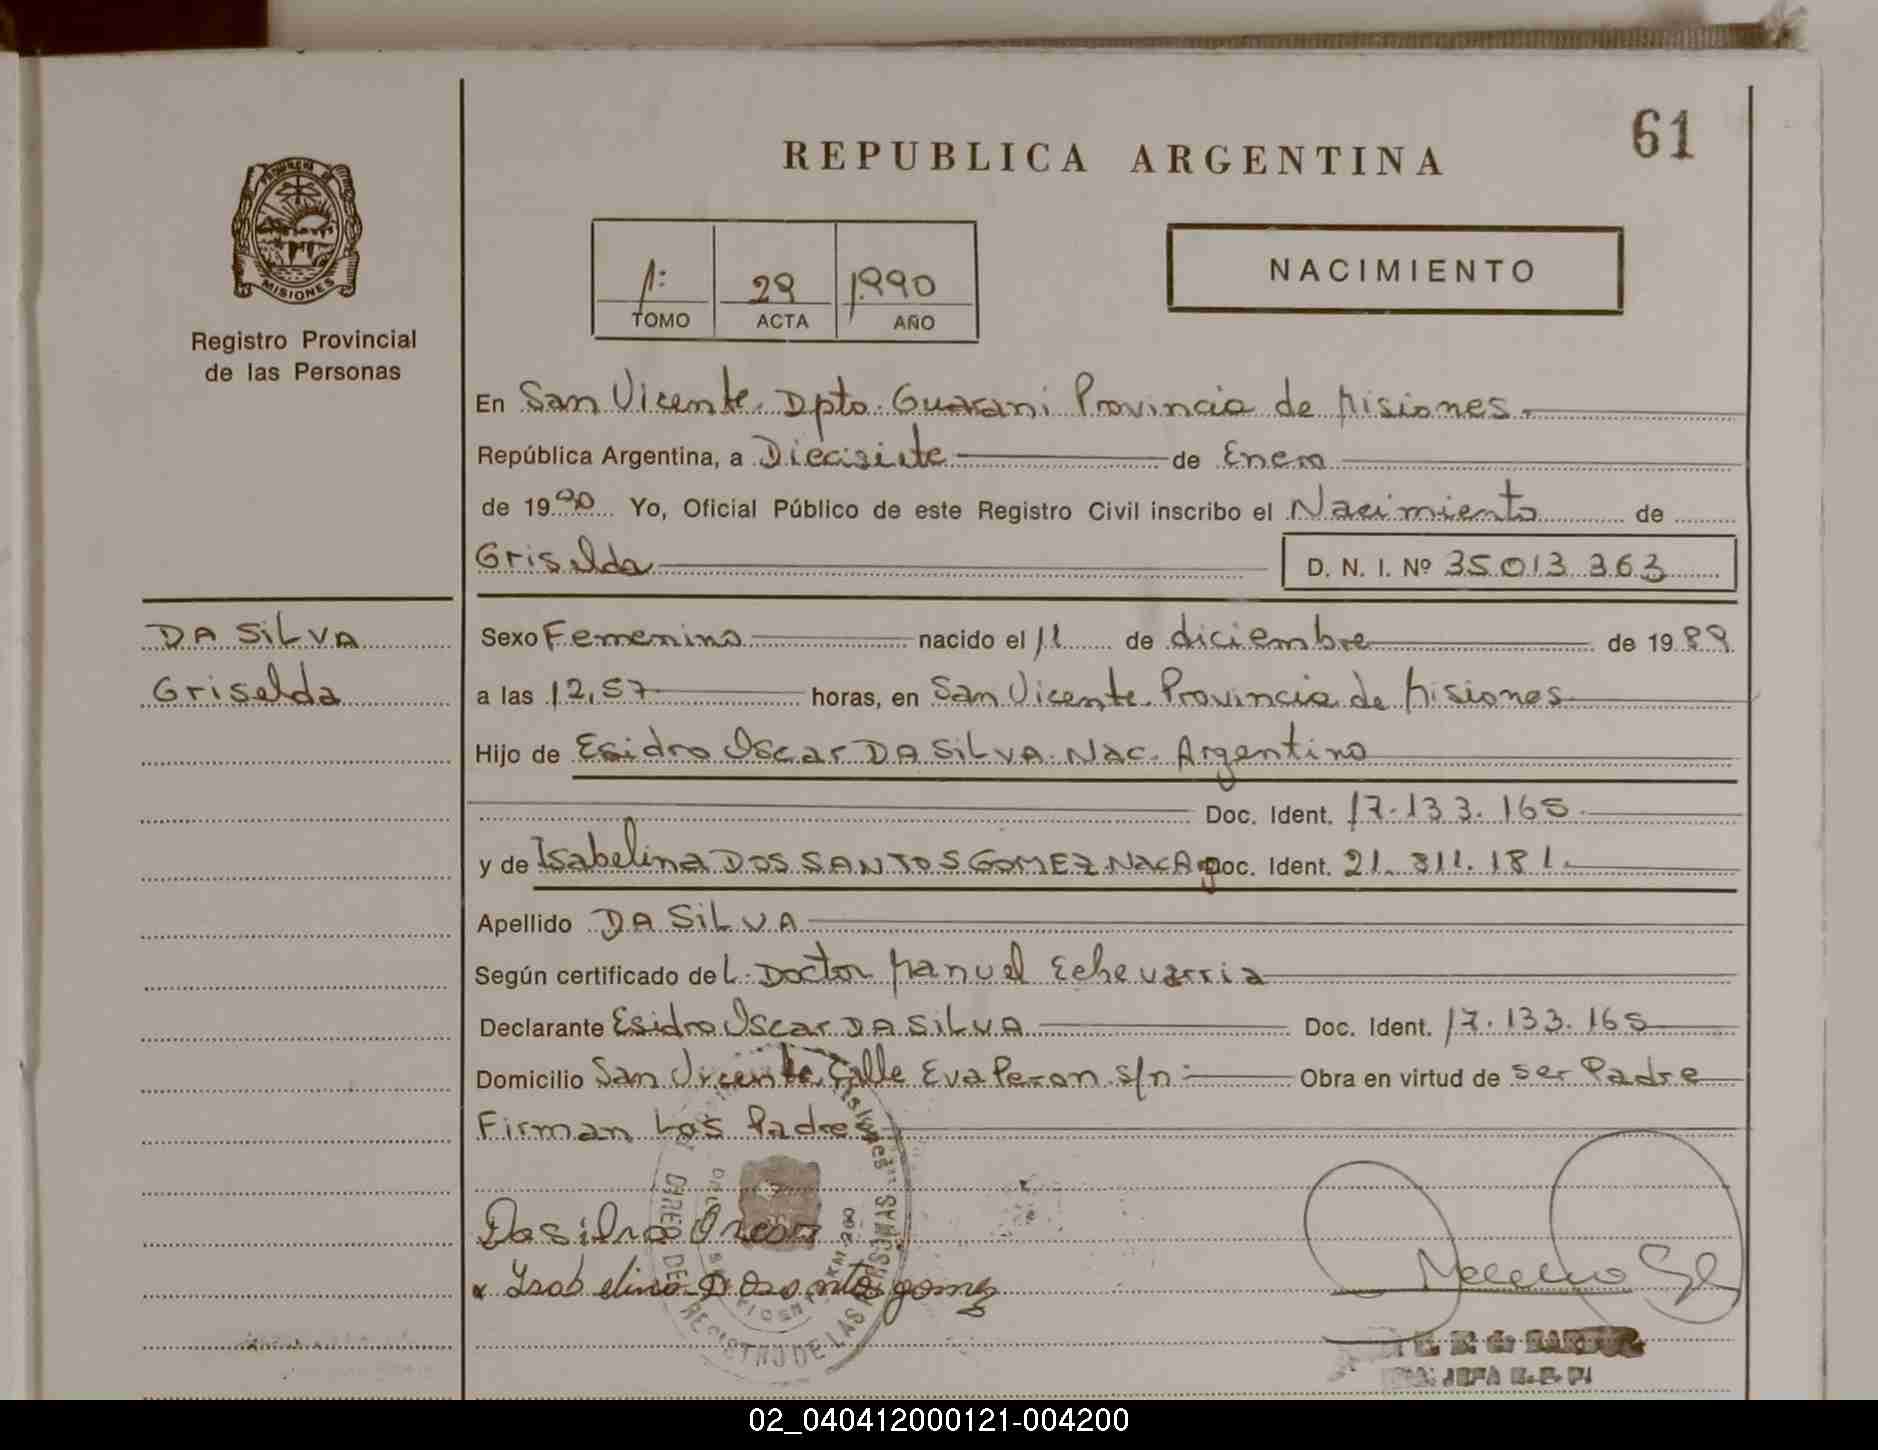 61
REPUBLICA ARGENTINA
MISIONES
Registro Provincial
de las Personas
1: 29 1990
TOMO ACTA AÑO
NACIMIENTO
En San Vicente. Dpto. Guarani Provincia de Misiones.
República Argentina, a Diecisiete de Enero
de 1990 Yo, Oficial Público de este Registro Civil inscribo el Nacimiento de
Griselda D. N. I. Nº 35 013 363
DA SiLVA
Griselda
Sexo Femenino nacido el 11 de diciembre de 1989
a las 12,57 horas, en San Vicente. Provincia de Misiones
Hijo de Esidro Oscar DA SiLVA. Nac. Argentino
Doc. Ident. 17.133.165.
y de Isabelina DOS SANTOS GOMEZ. Nac Ag Doc. Ident. 21.811.181.
Apellido DA SiLVA
Según certificado de L. Doctor Manuel Echevarria
Declarante Esidro Oscar DA SiLVA Doc. Ident. 17.133.165
Domicilio San Vicente, Calle Eva Peron s/n: Obra en virtud de ser Padre
Firman Los Padres
Dasilva Oscar
x Isabelina D Osantos gomez
REGISTRO DE LAS PERSONAS
02_040412000121-004200